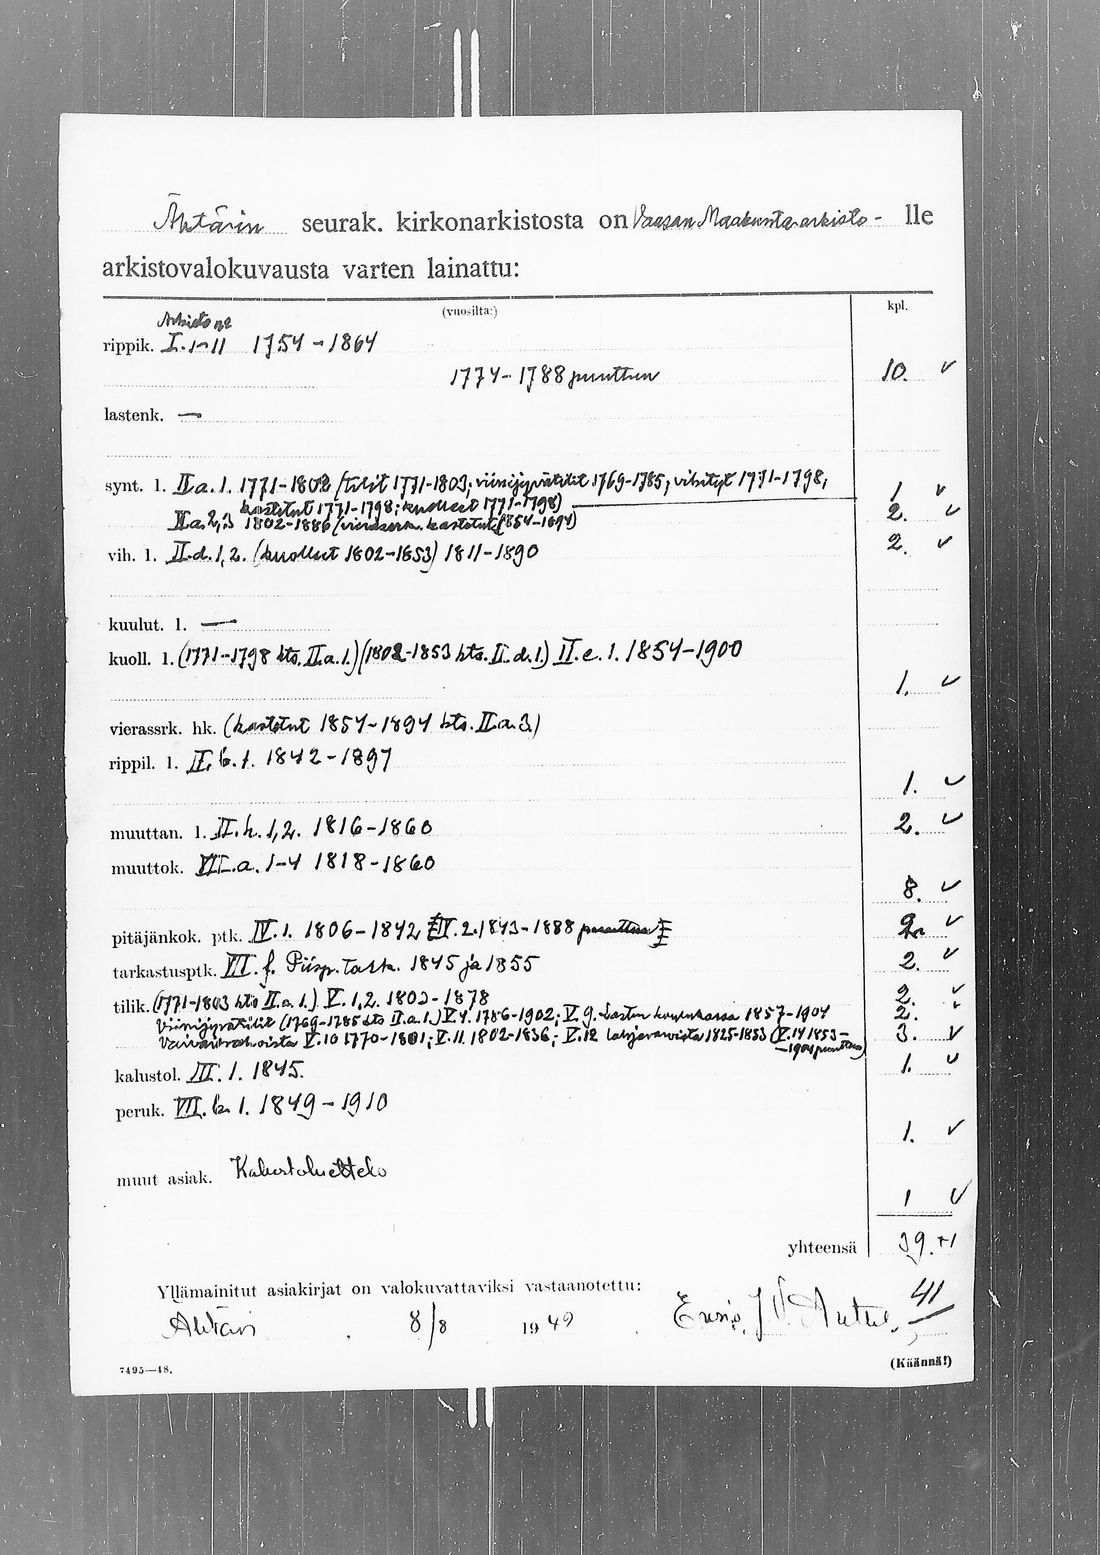 Ähtärin seurak. kirkonarkistosta on Vaasan Maakunta-arkisto - lle
arkistovalokuvausta varten lainattu:
(vuosilta:) kpl.
Arkisto n:o
rippik. I. 1-11 1754-1864
1774-1788 puuttuu 10. ✓
lastenk. —
synt. l. II a. 1. 1771-1802 (tilit 1771-1803; viinijyvätilit 1769-1785; vihityt 1771-1798,
kastetut 1771-1798; kuolleet 1771-1798) 1 ✓
II a. 2,3 1802-1886 (vierassrk. kastetut 1854-1894) 2. ✓
vih. l. II.d.1,2. (kuolleet 1802-1853) 1811-1890 2. ✓
kuulut. l. —
kuoll. l. (1771-1798 kts. II.a.1.) (1802-1853 kts. II.d.1.) II.e.1. 1854-1900
1. ✓
vierassrk. hk. (kastetut 1854-1894 kts. II.a.3.)
rippil. l. II.b.1. 1842-1897
1. ✓
muuttan. l. II.h.1,2. 1816-1860 2. ✓
muuttok. VII.a. 1-4 1818-1860
8. ✓
pitäjänkok. ptk. IV.1. 1806-1842 IV.2. 1843-1888 puuttuu 2. ✓
tarkastusptk. VII.f. Piisp. tark. 1845 ja 1855 2. ✓
tilik. (1771-1803 kts II.a.1.) V.1,2. 1802-1878 2. ✓
Viinijyvätilit (1769-1785 kts II.a.1.) V.4. 1786-1902; V.9. Lasten koulukassa 1857-1904 2. ✓
Vaivaisrahoista V.10 1770-1801; V.11. 1802-1836; V.12 Lahjavaroista 1825-1853 (V.14 1853- 3. ✓
-1904 puuttuu)
kalustol. III.1. 1845. 1. ✓
peruk. VII.k.1. 1849-1910
1. ✓
muut asiak. Kalustoluettelo
1 ✓
yhteensä 39. +1
Yllämainitut asiakirjat on valokuvattaviksi vastaanotettu: 41
Ähtäri 8/8 1949
7495—48. (Käännä!)